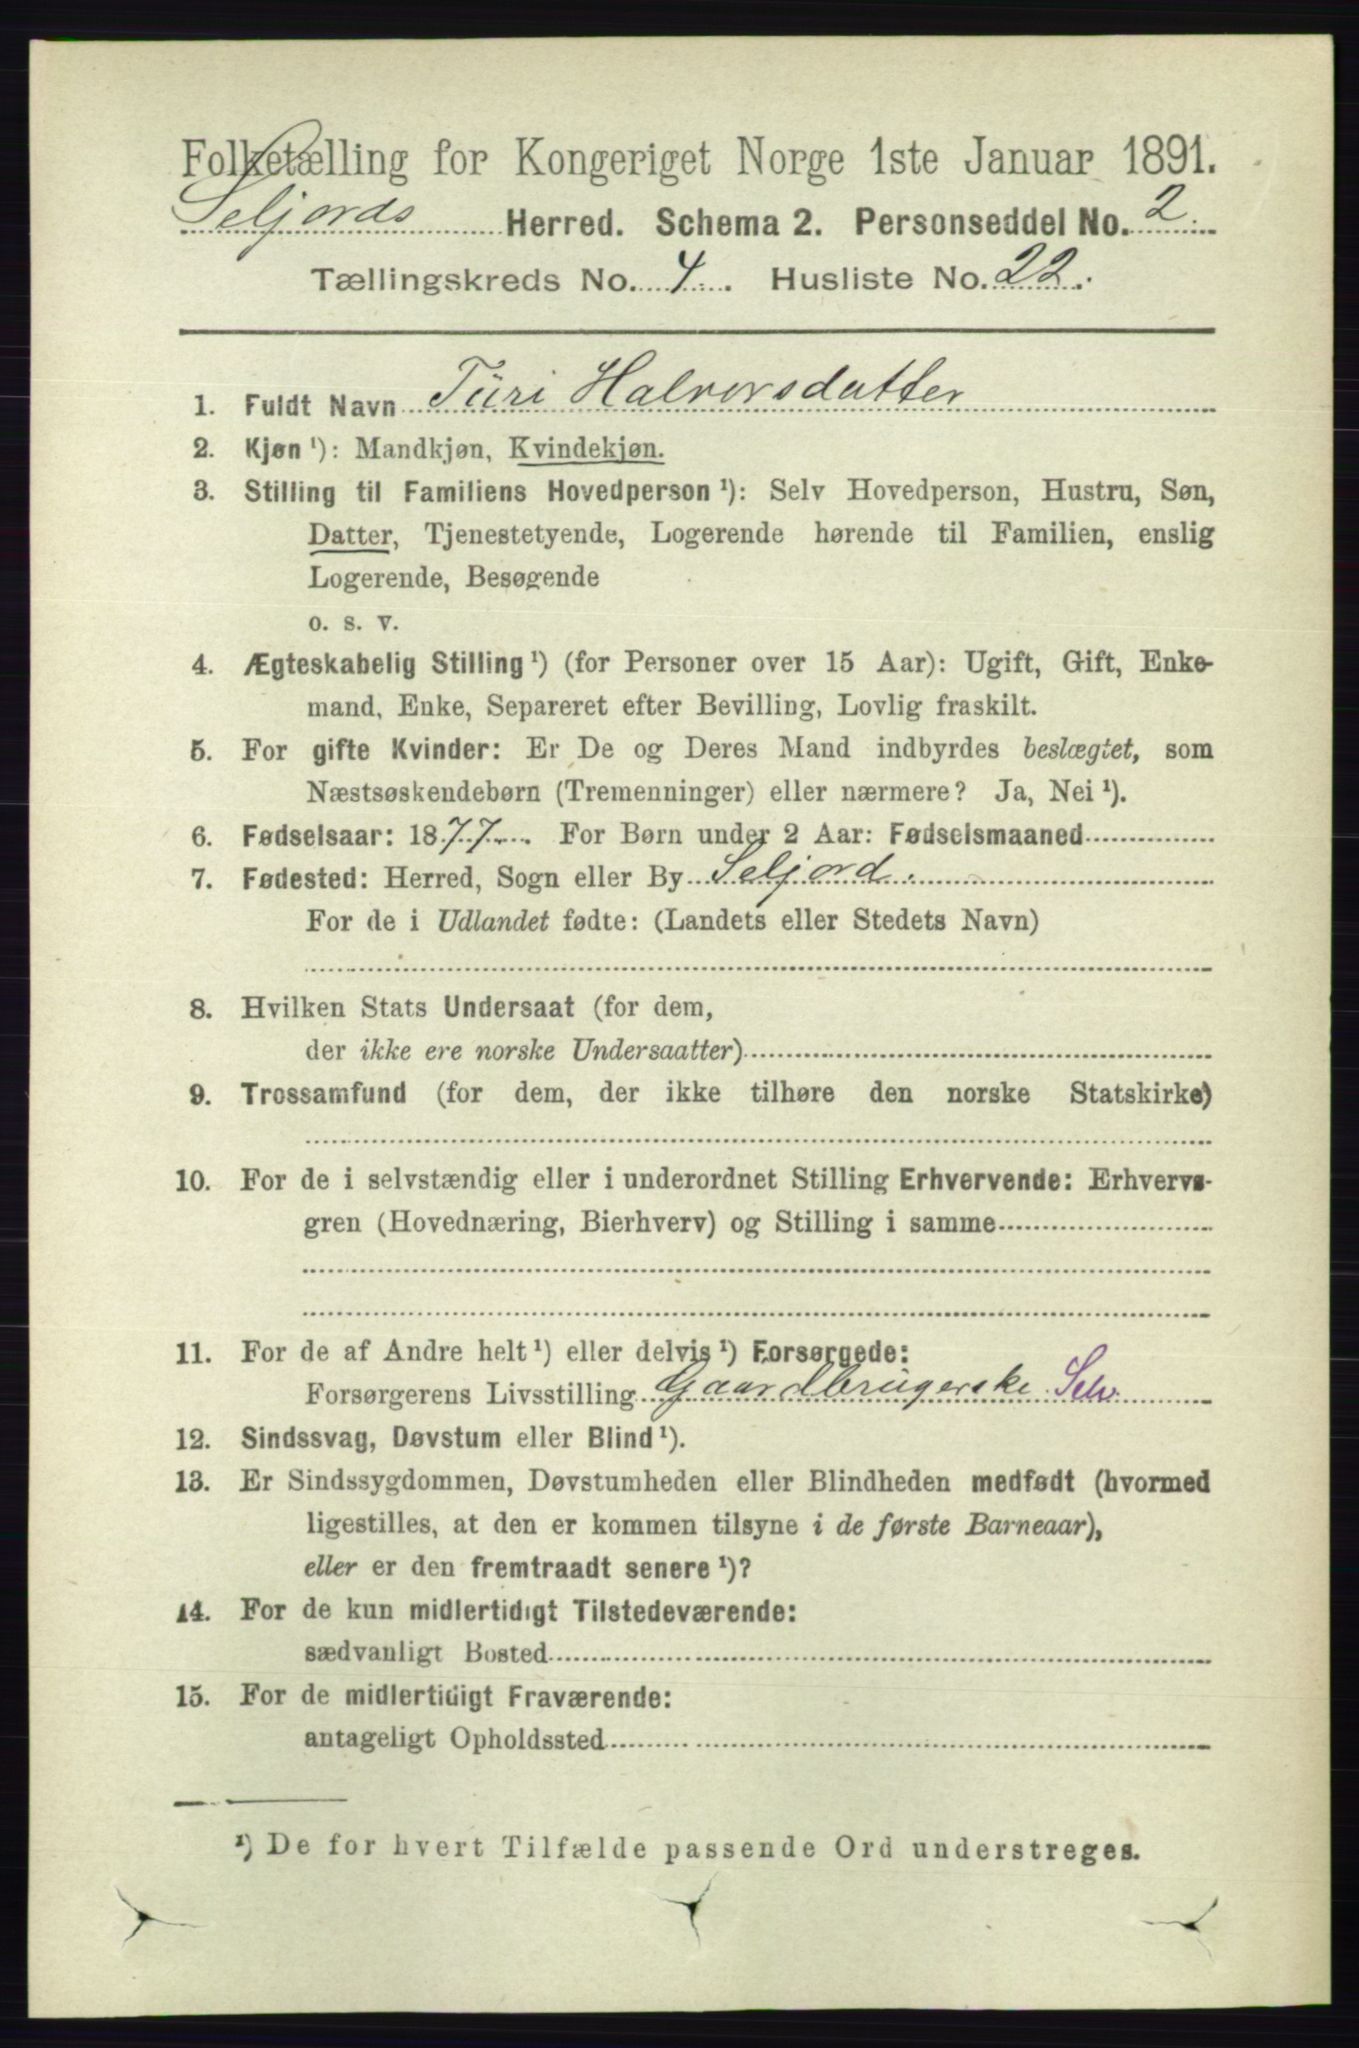 Folketælling for Kongeriget Norge 1ste Januar 1891.
Seljords Herred. Schema 2. Personseddel No. 2
Tællingskreds No. 4. Husliste No. 22.
1. Fuldt Navn Turi Halvorsdatter
2. Kjøn ¹): Mandkjøn, Kvindekjøn.
3. Stilling til Familiens Hovedperson ¹): Selv Hovedperson, Hustru, Søn,
Datter, Tjenestetyende, Logerende hørende til Familien, enslig
Logerende, Besøgende
o. s. v.
4. Ægteskabelig Stilling ¹) (for Personer over 15 Aar): Ugift, Gift, Enke-
mand, Enke, Separeret efter Bevilling, Lovlig fraskilt.
5. For gifte Kvinder: Er De og Deres Mand indbyrdes beslægtet, som
Næstsøskendebørn (Tremenninger) eller nærmere? Ja, Nei ¹).
6. Fødselsaar: 1877. For Børn under 2 Aar: Fødselsmaaned
7. Fødested: Herred, Sogn eller By Seljord.
For de i Udlandet fødte: (Landets eller Stedets Navn)
8. Hvilken Stats Undersaat (for dem,
der ikke ere norske Undersaatter)
9. Trossamfund (for dem, der ikke tilhøre den norske Statskirke)
10. For de i selvstændig eller i underordnet Stilling Erhvervende: Erhvervs-
gren (Hovednæring, Bierhverv) og Stilling i samme
11. For de af Andre helt ¹) eller delvis ¹) Forsørgede:
Forsørgerens Livsstilling Gaardbrugerske Selv.
12. Sindssvag, Døvstum eller Blind ¹).
13. Er Sindssygdommen, Døvstumheden eller Blindheden medfødt (hvormed
ligestilles, at den er kommen tilsyne i de første Barneaar),
eller er den fremtraadt senere ¹)?
14. For de kun midlertidigt Tilstedeværende:
sædvanligt Bosted
15. For de midlertidigt Fraværende:
antageligt Opholdssted
¹) De for hvert Tilfælde passende Ord understreges.